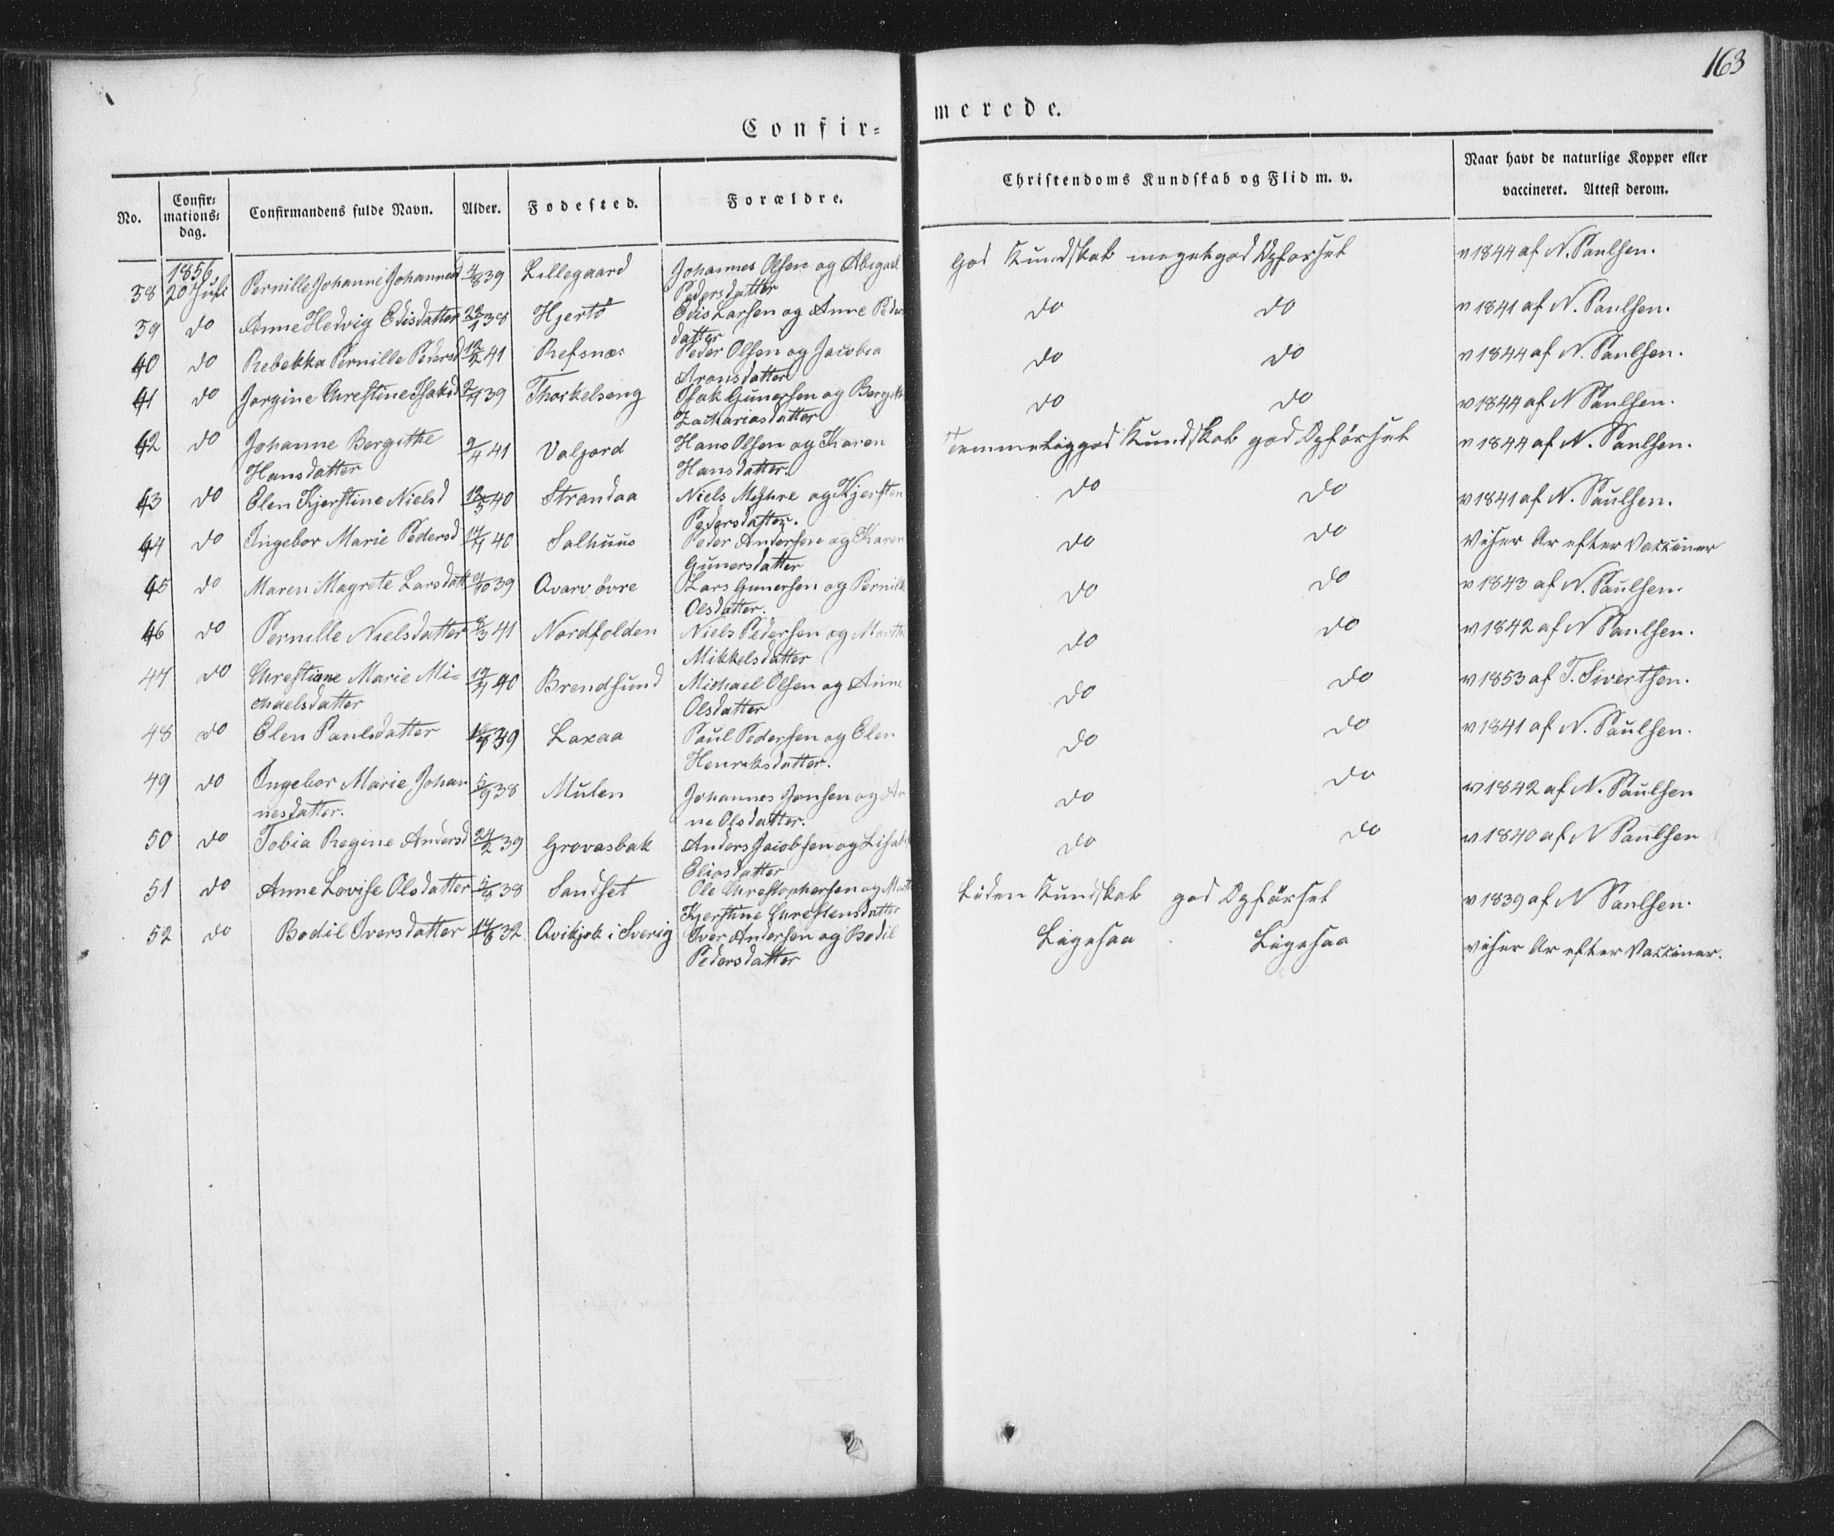 163
Confir-
merede.
No.
Confir-
mations-
dag.
Confirmandens fulde Navn.
Alder.
Fødested.
Forældre.
Christendoms Kundskab og Flid m. v.
Naar havt de naturlige Kopper eller
vaccineret. Attest derom.
1856
38 20 Juli Pernille Johanne Johannesd 39 Lillegaard Johannes Olsen og Abigael God Kundskab megetgod Opførsel v 1844 af N. Paulsen.
Pedersdatter
39 do Anne Hedvig Edisdatter 38 Hjertø Edis Larsen og Anne Peders do do v 1841 af N. Paulsen.
datter
40 do Rebekka Pernille Pedersd 41 Refsnæs Peder Olsen og Jacobia do do v 1844 af N. Paulsen.
Aronsdatter
41 do Jørgine Christine Isaksd 39 Thorkelseng Isak Gunersen og Bergitte do do v 1844 af N Paulsen.
Zachariasdatter
42 do Johanne Bergithe 2/4 41 Valjord Hans Olsen og Karen Temmeliggod Kundskab god Opførsel v 1844 af N. Paulsen.
Hansdatter Hansdatter.
43 do Elen Kjerstine Nielsd 40 Strandaa Niels og Kjersten do do v 1841 af N. Paulsen.
Pedersdatter.
44 do Ingebor Marie Pedersd 40 Salhuus Peder Andersen og Karen do do Viser Ar efter Vacciner
Gunersdatter
45 do Maren Magrete Larsdatt 39 Qvarv øvre Lars Gunersen og Pernille do do v 1843 af N. Paulsen.
Olsdatter.
46 do Pernille Nielsdatter 41 Nordfolden Niels Pedersen og Marthe do do v 1842 af N Paulsen.
Mikkelsdatter
47 do Christiane Marie Mi- 40 Brendsund Michael Olsen og Anne do do v 1853 af T. Sivertsen.
chaelsdatter Olsdatter
48 do Elen Paulsdatter 39 Laxaa Paul Pedersen og Elen do do v 1841 af N. Paulsen.
Henriksdatter.
49 do Ingebor Marie Johan 5/9 38 Mulen Johannes Jensen og An do do v 1842 af N. Paulsen
nesdatter. ne Olsdatter.
50 do Tobia Regine Andersd 24/2 39 Grovasbak Anders Jacobsen og Lisab do do v 1840 af N Paulsen
Eliasdatter
51 do Anne Lovise Olsdatter 38 Sandset Ole Christophersen og Liden Kundskab god Opførsel v 1839 af N Paulsen.
Kjerstine Christensdatter
52 do Bodil Iversdatter 32 Qvikjok i Sverig Iver Andersen og Bodil Ligesaa Ligesaa viser Ar efter Vacciner.
Pedersdatter